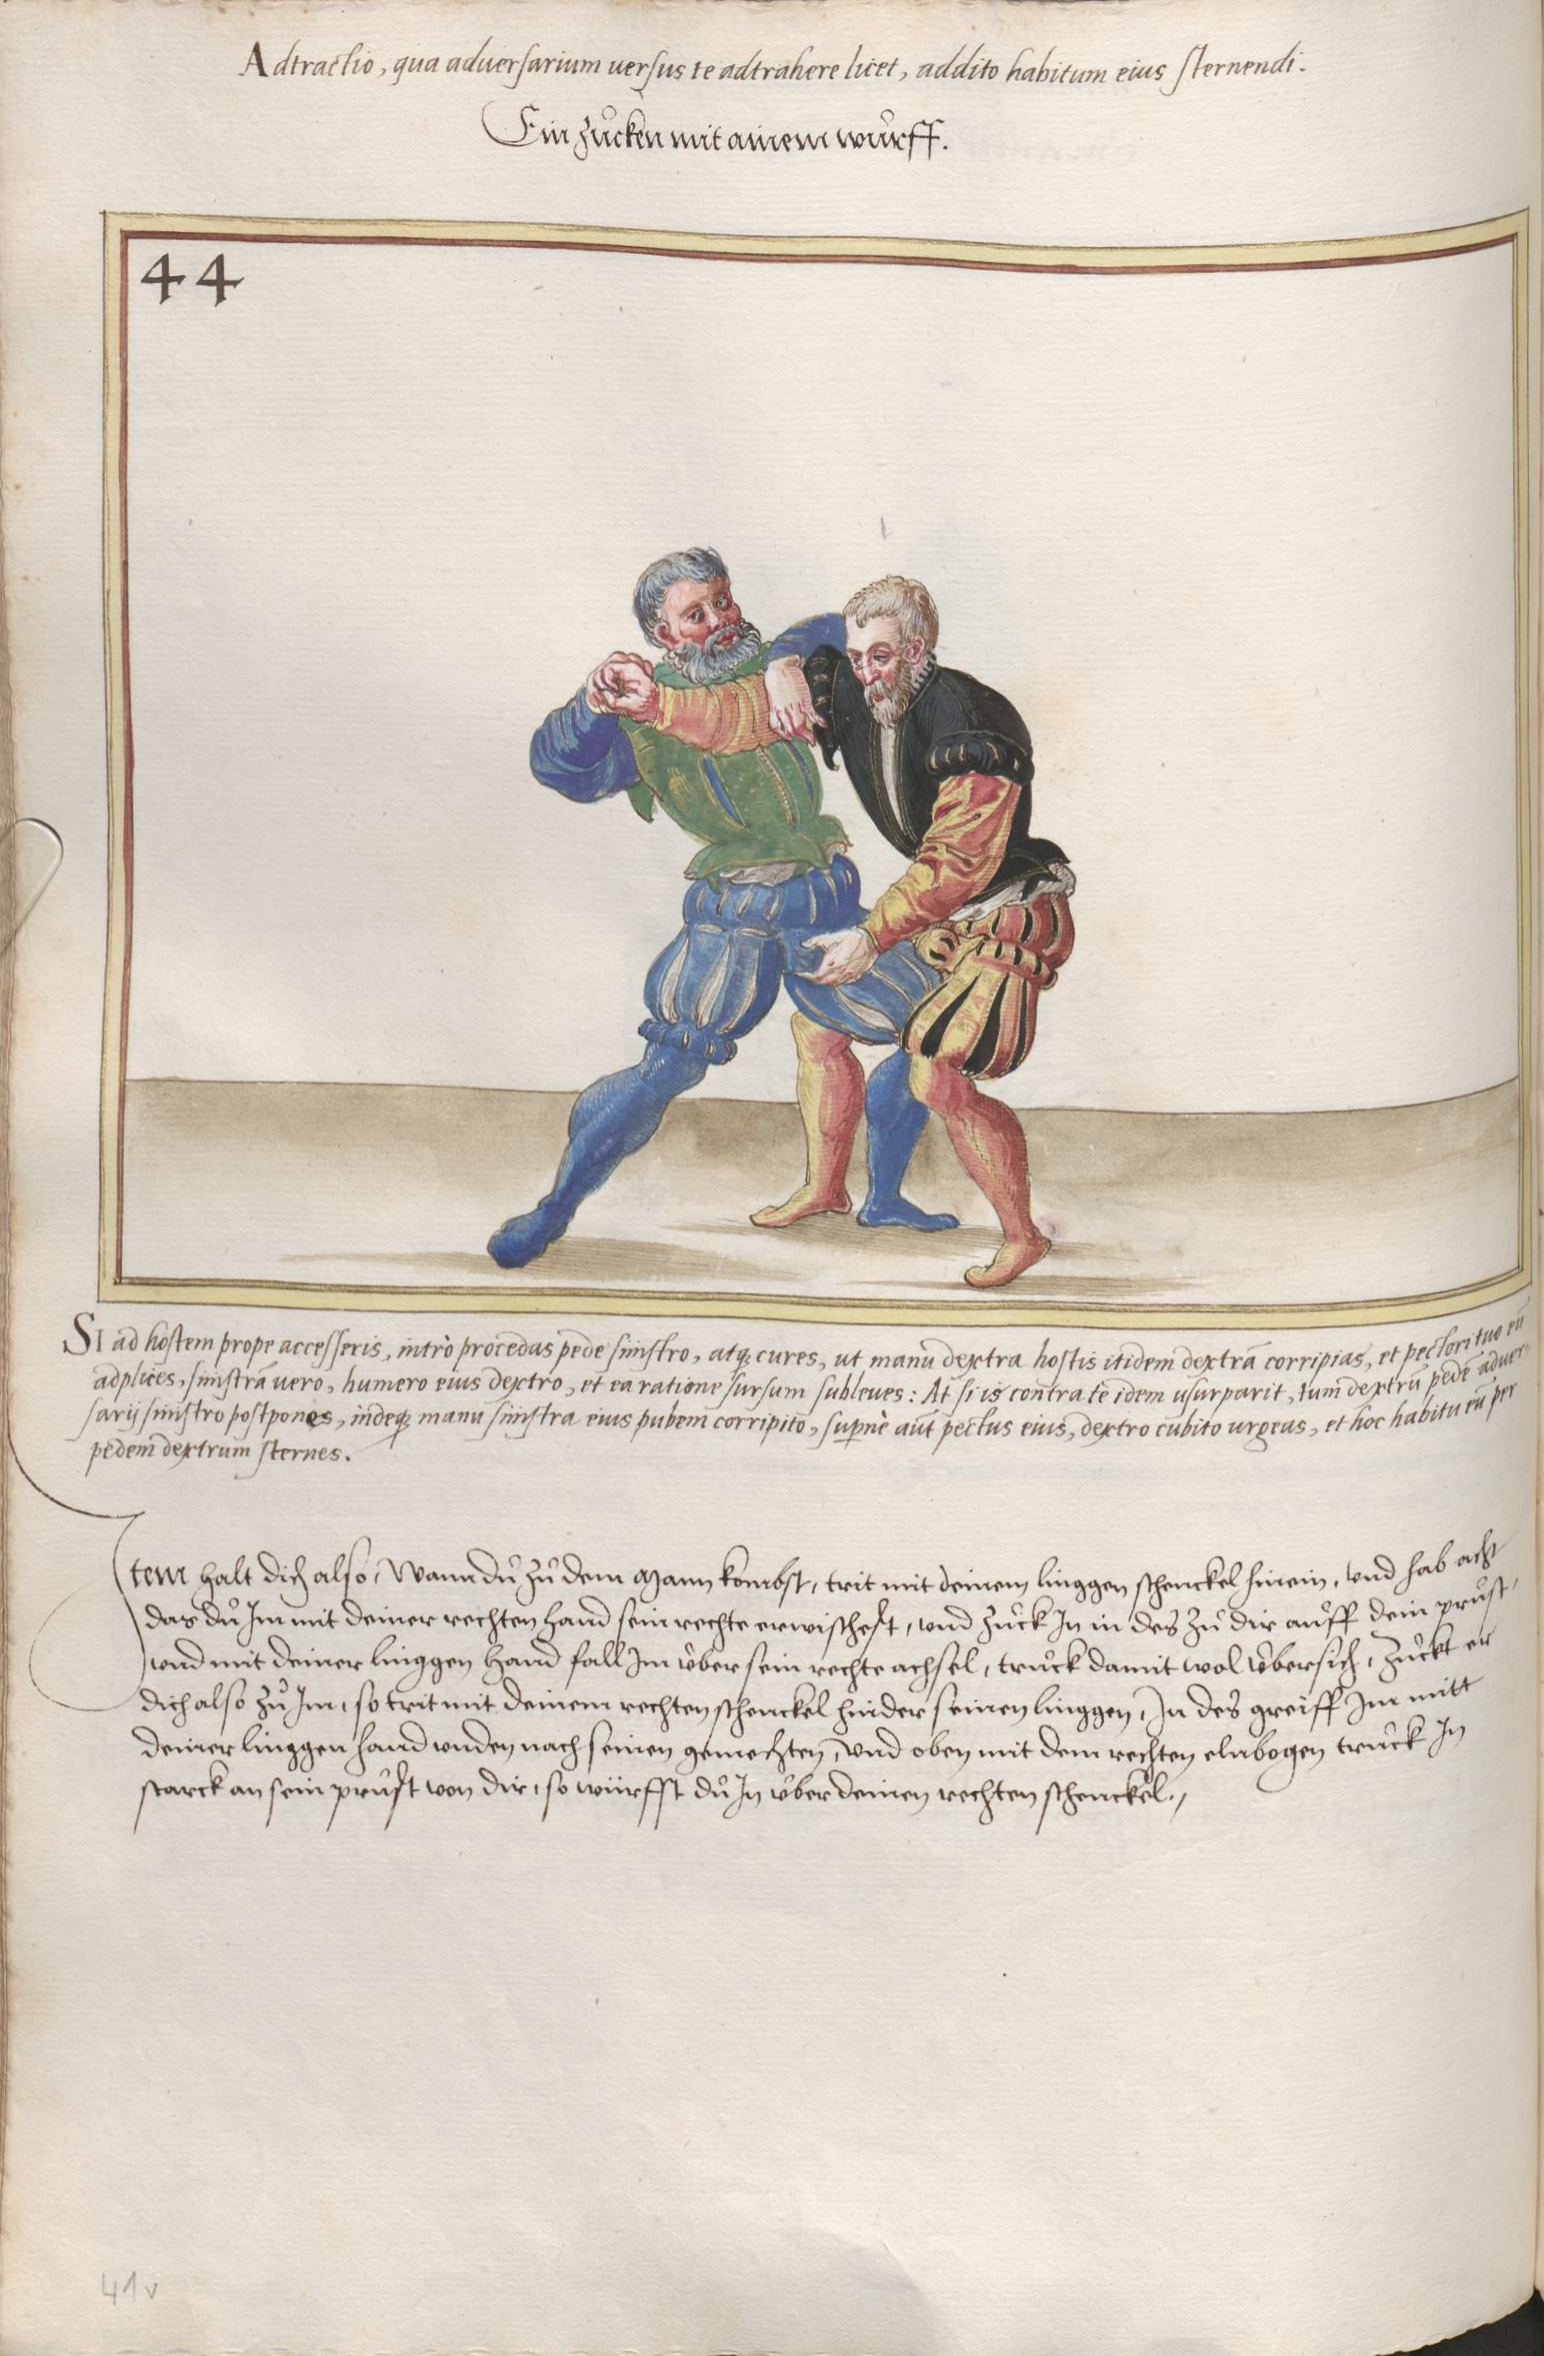 Adtractio, qua aduersarium uersus te adtrahere licet, addito habitum eius sternendi.
Ein zuͦcken mit ainem wuͦrff.
44
SI ad hostem prope accesseris, intrò procedas pede sinistro, atq; cures, ut manu dextra hostis itidem dextrā corripias, et pectori tuo eū
adplices, sinistrā uero, humero eius dextro, et ea ratione sursum subleues: At si is contra te idem usurparit, tum dextrū pedē aduer
sarij sinistro postpones, indeq; manu sinistra eius pubem corripito, supernè aūt pectus eius, dextro cubito urgeas, et hoc habitu eū per
pedem dextrum sternes.
Item halt dich also, Wann duͦ zuͦ dem Mann kombst, trit mit deinem linggen schenckel hinein, vnd hab acht
das duͦ Im mit deiner rechten hand sein rechte erwischest, vnd zuͦck In in des zuͦ dir auͦff dein pruͦst,
vnd mit deiner linggen Hand fall Im v̈ber sein rechte achsel, truͦck damit wol v̈bersich, Zuͦckt er
dich also zuͦ Im, so trit mit deinem rechten schenckel hinder seinen linggen, In des greiff Im mitt
deiner linggen hand vnden nach seinen gemechten, Vnd oben mit dem rechten elnbogen truͦck In
starck an sein pruͦst von dir, so würffst duͦ In v̈ber deinen rechten schenckel.,
41v